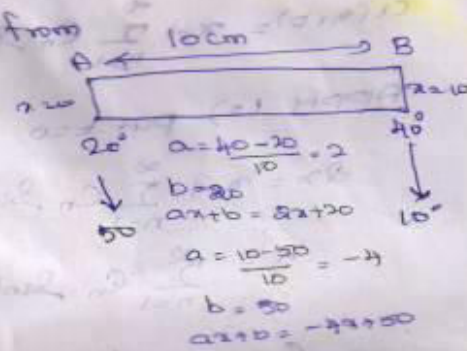 from
10cm
A B
x=0 x=10
20° 40°
a = 40-20/10 = 2
b=20
ax+b = 2x+20
50 10°
a = 10-50/10 = -4
b = 50
ax+b = -4x+50